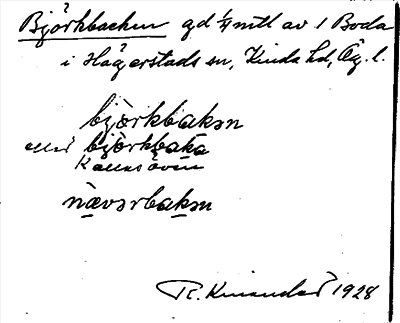 Björkbacken gd 1/4 mtl av 1 Boda
i Hägerstads sn, Kinda hd, Ög. l.
björkbakən
björkbaka
Kallas även
nævərbakən
R. Kinander 1928